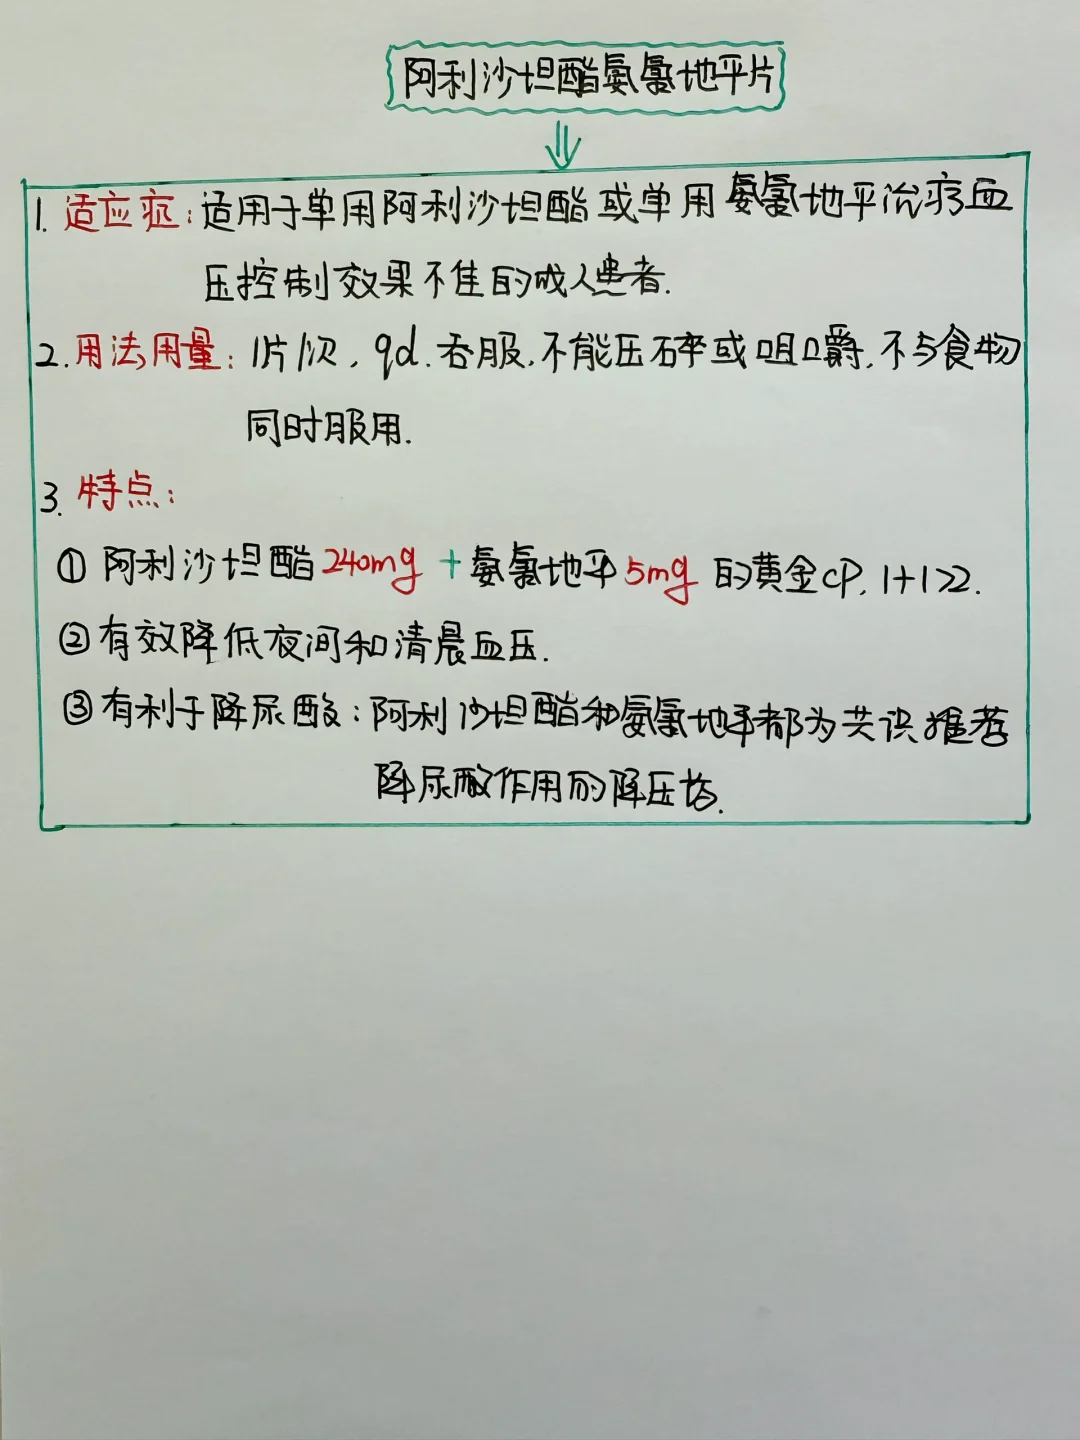 阿利沙坦酯氨氯地平片
1. 适应症：适用于单用阿利沙坦酯或单用氨氯地平治疗血
压控制效果不佳的成人患者.
2. 用法用量：1片/次，qd. 吞服. 不能压碎或咀嚼. 不与食物
同时服用.
3. 特点：
① 阿利沙坦酯240mg + 氨氯地平5mg的黄金CP. 1+1>2.
② 有效降低夜间和清晨血压.
③ 有利于降尿酸：阿利沙坦酯和氨氯地平都为共识推荐
降尿酸作用的降压药.